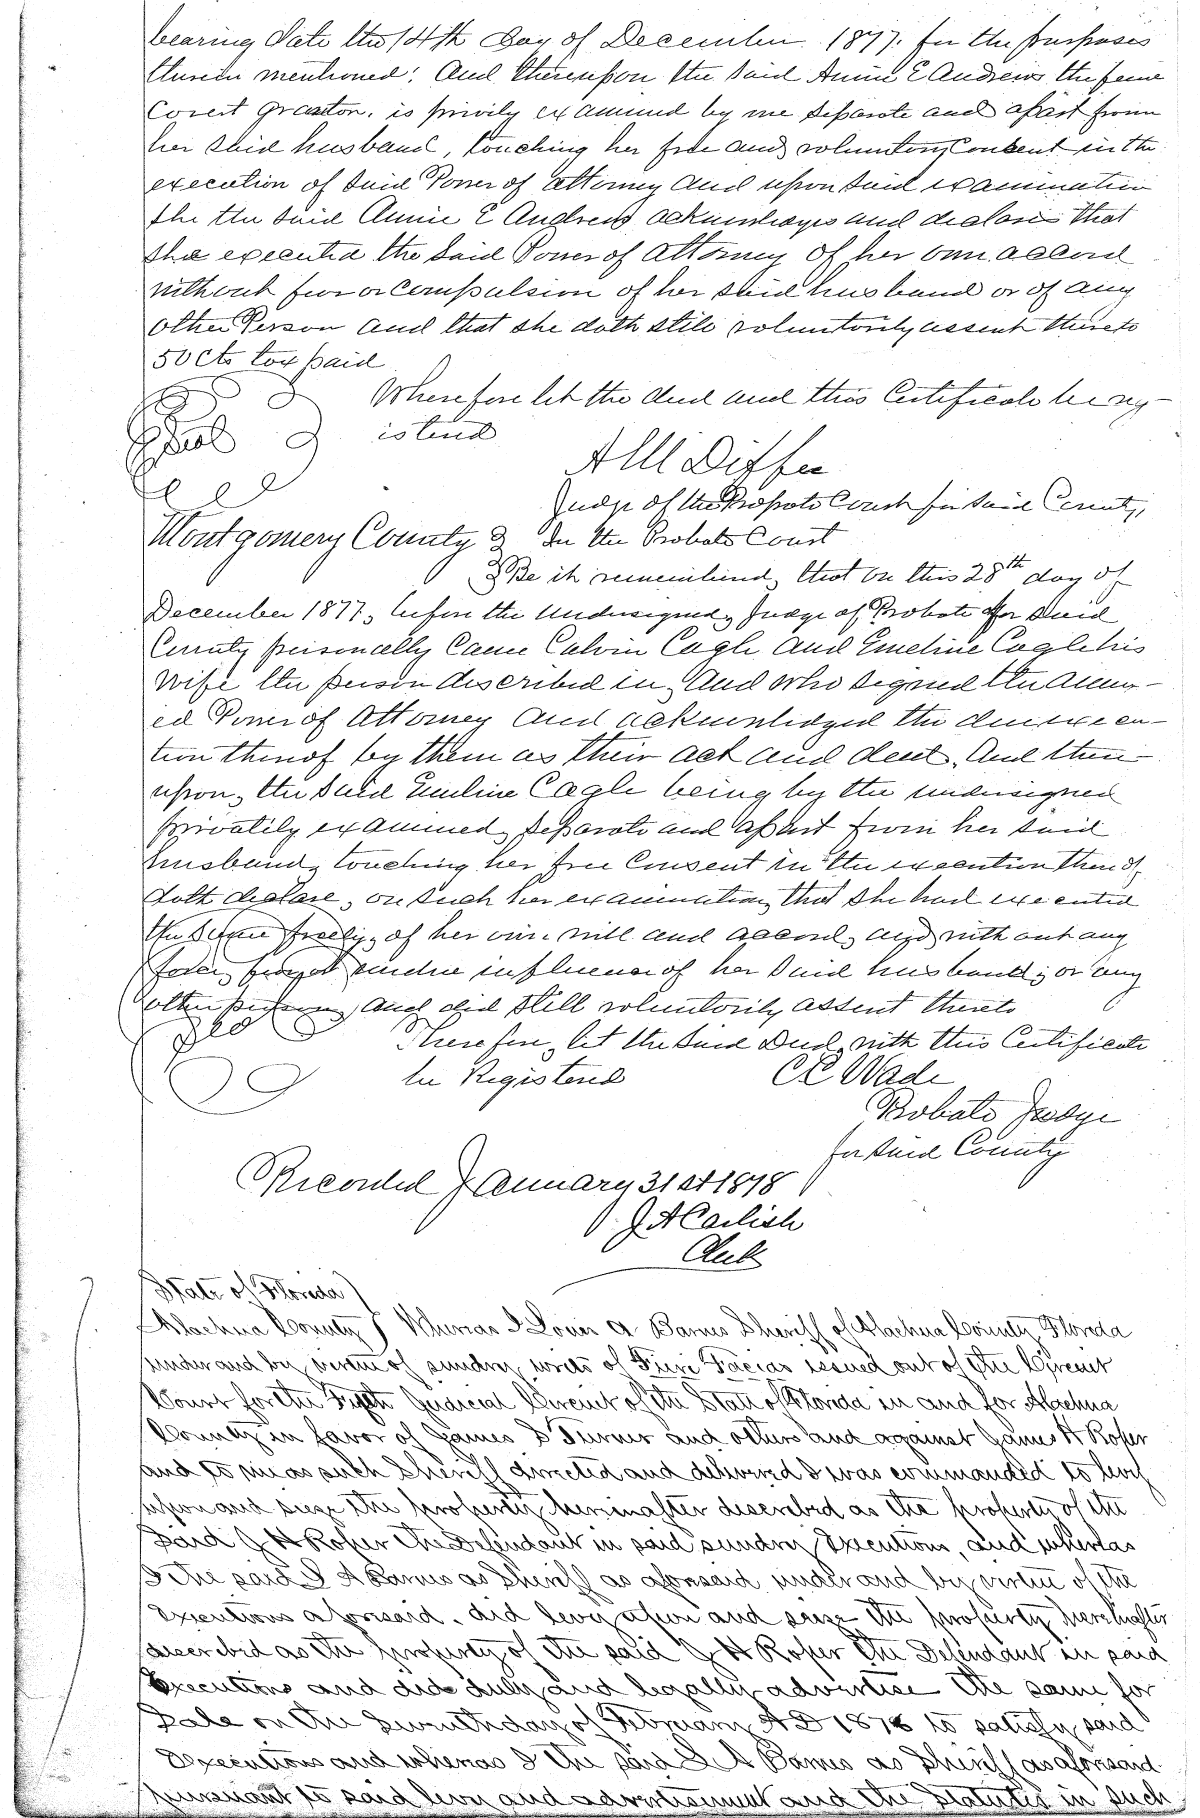 bearing date the 14th day of December 1877. for the purposes
therein mentioned: And thereupon the said Annie E Andrews the feme
Covert grantor. is privily examined by me separate and apart from
her said husband, touching her free and voluntary Consent in the
execution of said Power of attorney and upon said examination
she the said Annie E Andrews acknowledges and declares that
she executed the said Power of Attorney of her own accord
without fear or compulsion of her said husband or of any
other Person and that she doth still voluntarily assent thereto
50 cts tax paid
Wherefore let the deed and this Certificate be reg-
istered
Seal
A M Diffee
Judge of the Probate Court for said County,
Montgomery County } In the Probate Court
} Be it remembered, that on this 28th day of
December 1877, before the undersigned, Judge of Probate for said
County personally Came Calvin Cagle and Emeline Cagle his
wife the person described in, and who signed the annex-
ed Power of Attorney and acknowledged the due execu-
tion thereof by them as their act and deed, And there-
upon, the said Emeline Cagle being by the undersigned
privately examined, separate and apart from her said
husband, touching her free Consent in the execution thereof,
doth declare, on such her examination, that she had executed
the same freely, of her own will and accord, and without any
force, fraud or undue influence of her said husband; or any
other person, and did still voluntarily assent thereto
Therefore, let the said Deed, with this Certificate
be Registered
C C Wade
Probate Judge
for said County
Recorded January 31st 1878
J A Carlisle
Clerk
State of Florida }
Alachua County } Whereas I Louis A Barnes Sheriff of Alachua County Florida
under and by virtue of sundry writs of Fieri Facias issued out of the Circuit
Court for the Fifth Judicial Circuit of the State of Florida in and for Alachua
County in favor of James D Turner and others and against James H Roper
and to me as such Sheriff directed and delivered I was commanded to levy
upon and seize the property hereinafter described as the property of the
said J H Roper the Defendant in said sundry Executions, and whereas
I the said L A Barnes as Sheriff as aforesaid under and by virtue of the
Executions aforesaid. did levy upon and seize the property hereinafter
described as the property of the said J H Roper the Defendant in said
Executions and did duly and legally advertise the same for
Sale on the Seventh day of February A D 1878 to satisfy said
Executions and whereas I the said L A Barnes as Sheriff as aforesaid
pursuant to said levy and advertisement and the Statutes in such